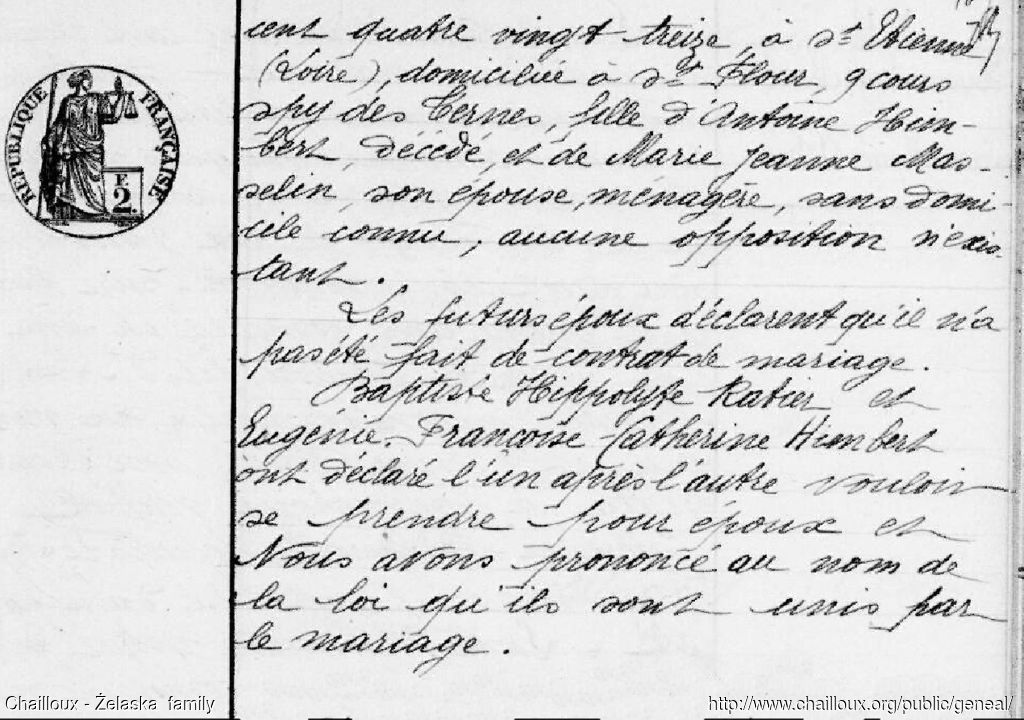 cent quatre vingt treize, à St Etienne
(Loire), domiciliée à St Flour, 9 cours
spy des Ternes, fille d'Antoine Him-
bert, décédé, et de Marie Jeanne Mas-
selin, son épouse, ménagère, sans domi-
cile connu, aucune opposition n'exis-
tant.
Les futurs époux déclarent qu'il n'a
pas été fait de contrat de mariage.
Baptiste Hippolyte Ratier et
Eugénie Françoise Catherine Himbert
ont déclaré l'un après l'autre vouloir
se prendre pour époux et
Nous avons prononcé au nom de
la loi qu'ils sont unis par
le mariage.
RÉPUBLIQUE FRANÇAISE
F.
2.
Chailloux - Żelaska family
http://www.chailloux.org/public/geneal/